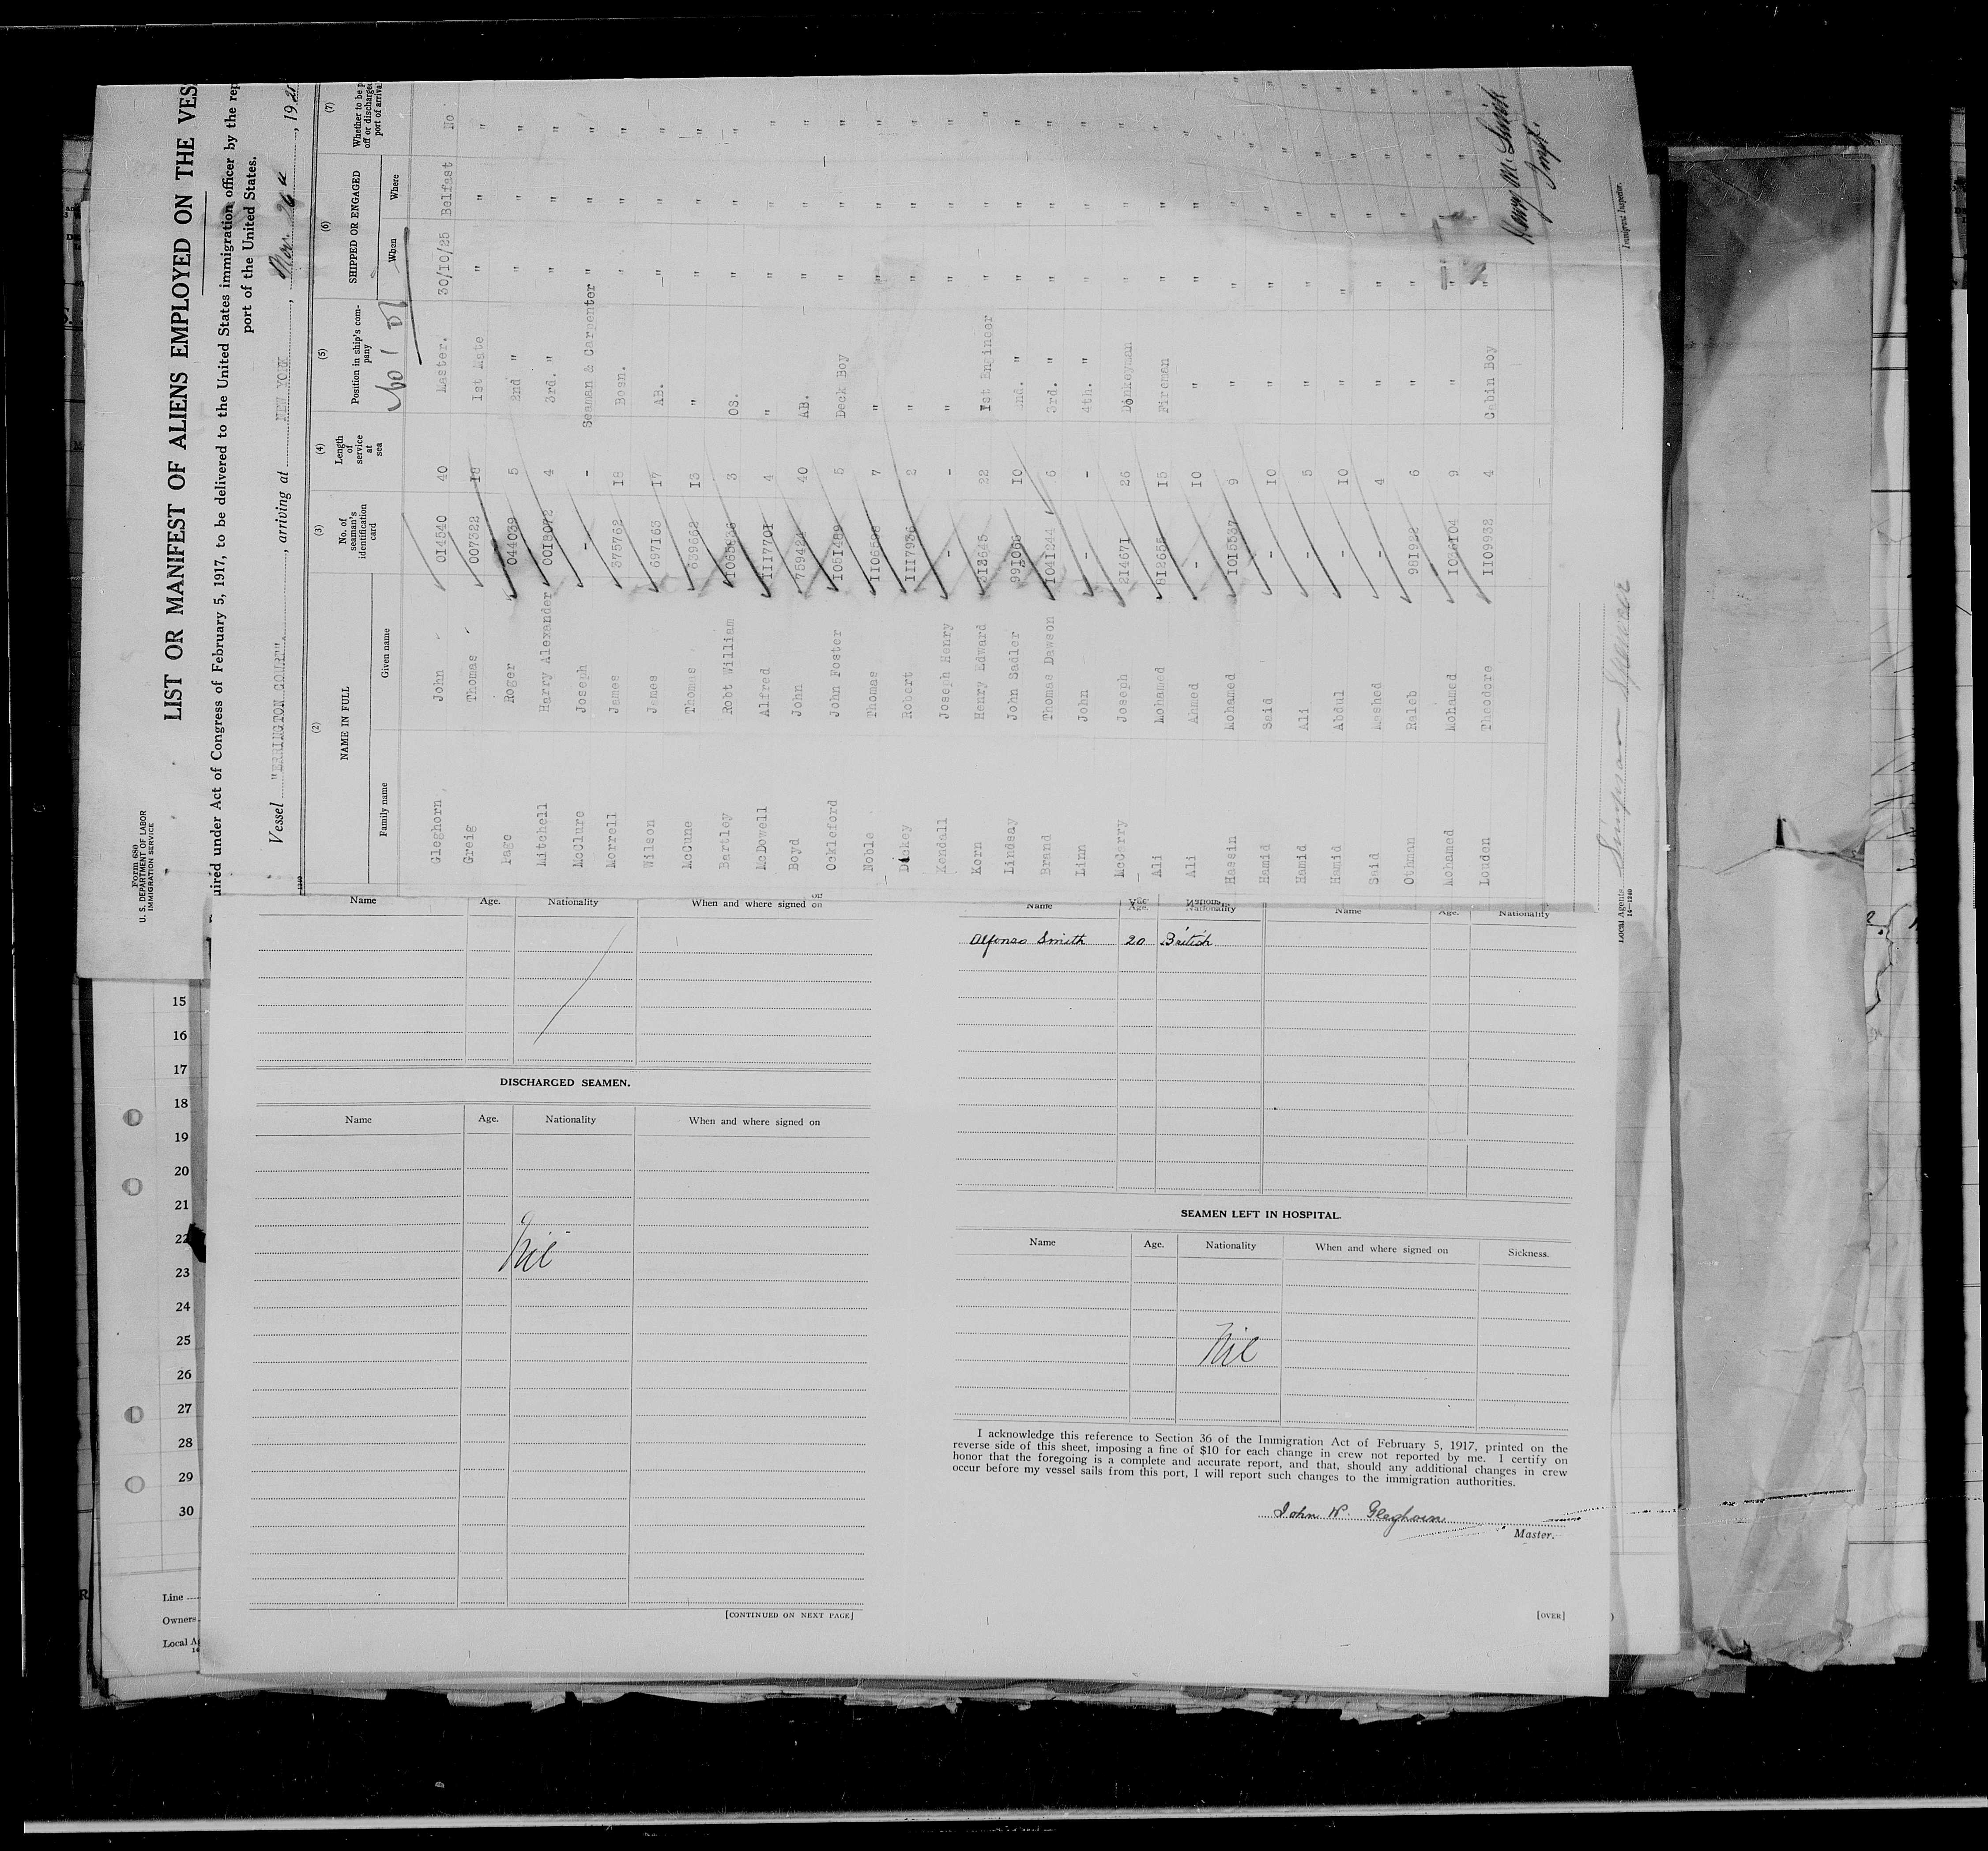 Form 680
U. S. DEPARTMENT OF LABOR
IMMIGRATION SERVICE
LIST OR MANIFEST OF ALIENS EMPLOYED ON THE VES
uired under Act of Congress of February 5, 1917, to be delivered to the United States immigration officer by the rep
port of the United States.
Vessel "ERRINGTON COURT", arriving at NEW YORK, Nov. 26th, 1925
(2) (3) (4) (5) (6) (7)
NAME IN FULL No. of seaman's identification card Length of service at sea Position in ship's company SHIPPED OR ENGAGED Whether to be p off or discharged port of arrival
Family name Given name When Where
Gleghorn John 014540 40 Master. 30/10/25 Belfast No.
Greig Thomas 007322 18 1st Mate " " "
Page Roger 044039 5 2nd " " " "
Mitchell Harry Alexander 0018072 4 3rd. " " " "
McClure Joseph - - Seaman & Carpenter " " "
Morrell James 375762 18 Bosn. " " "
Wilson James 697163 17 AB. " " "
McCune Thomas 639662 13 " " " "
Bartley Robt William 1065636 3 OS. " " "
McDowell Alfred 1117701 4 " " " "
Boyd John 759424 40 AB. " " "
Ockleford John Foster 1051489 5 Deck Boy " " "
Noble Thomas 7 " " " "
Dickey Robert 1117936 2 " " " "
Kendall Joseph Henry - - " " " "
Korn Henry Edward 313645 22 1st Engineer " " "
Lindsay John Sadler 991066 10 2nd. " " " "
Brand Thomas Dawson 1041244 6 3rd. " " " "
Linn John - - 4th. " " " "
McGerry Joseph 214671 26 Donkeyman " " "
Ali Mohamed 812655 15 Fireman " " "
Ali Ahmed - 10 " " " "
Hassin Mohamed 1015537 9 " " " "
Hamid Said - 10 " " " "
Hamid Ali - 5 " " " "
Hamid Abdul - 10 " " " "
Said Mashed - 4 " " " "
Othman Raleb 981922 6 " " " "
Mohamed Mohamed 1036104 9 " " " "
Louden Theodore 1109932 4 Cabin Boy " " "
Immigrant Inspector.
Local Agents
14—1240
Name Age. Nationality When and where signed on
Name Age. Nationality Name Age. Nationality
Alfonso Smith 20 British
DISCHARGED SEAMEN.
Name Age. Nationality When and where signed on
Nil
[CONTINUED ON NEXT PAGE]
SEAMEN LEFT IN HOSPITAL.
Name Age. Nationality When and where signed on Sickness.
Nil
I acknowledge this reference to Section 36 of the Immigration Act of February 5, 1917, printed on the
reverse side of this sheet, imposing a fine of $10 for each change in crew not reported by me. I certify on
honor that the foregoing is a complete and accurate report, and that, should any additional changes in crew
occur before my vessel sails from this port, I will report such changes to the immigration authorities.
John W. Gleghorn
Master.
[OVER]
15
16
17
18
19
20
21
22
23
24
25
26
27
28
29
30
Line
Owners
Local A